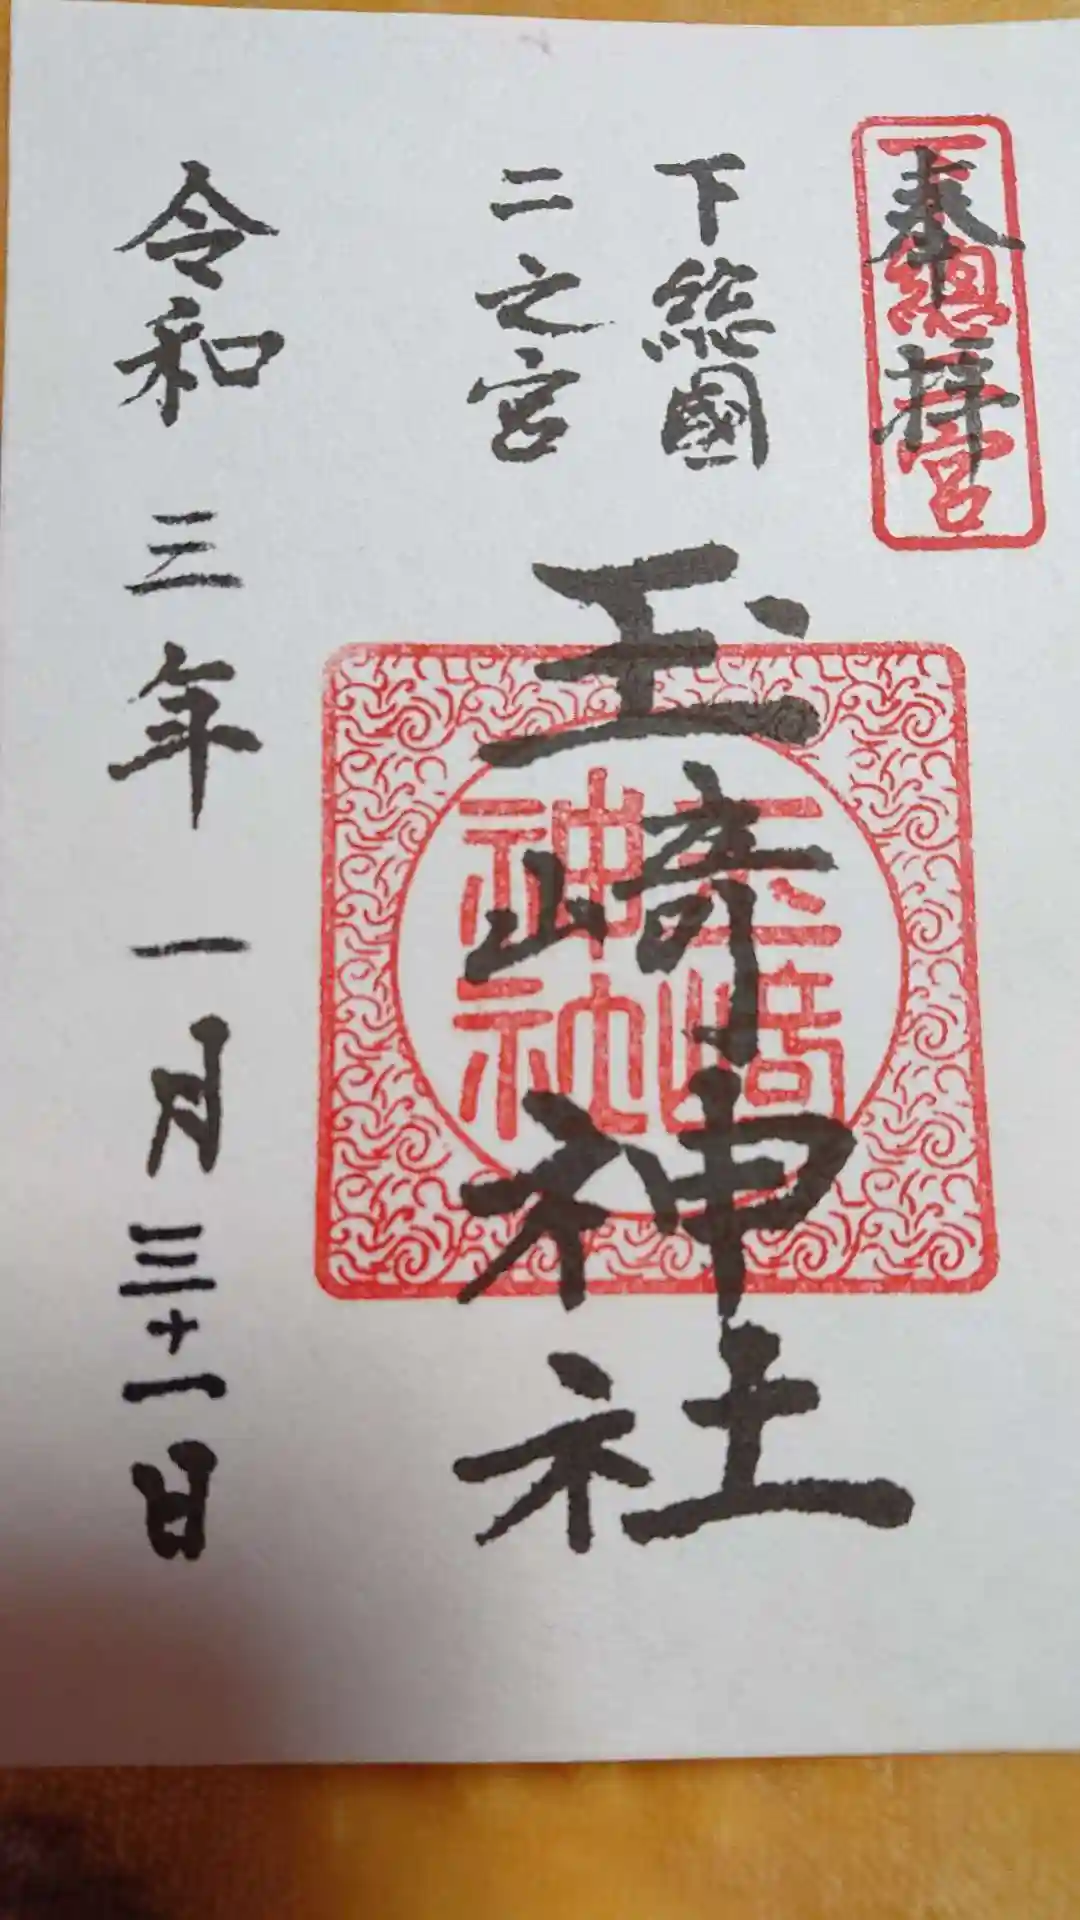 奉拝
下總二宮
下総國
二之宮
玉﨑神社
玉﨑
神社
令和三年一月三十一日